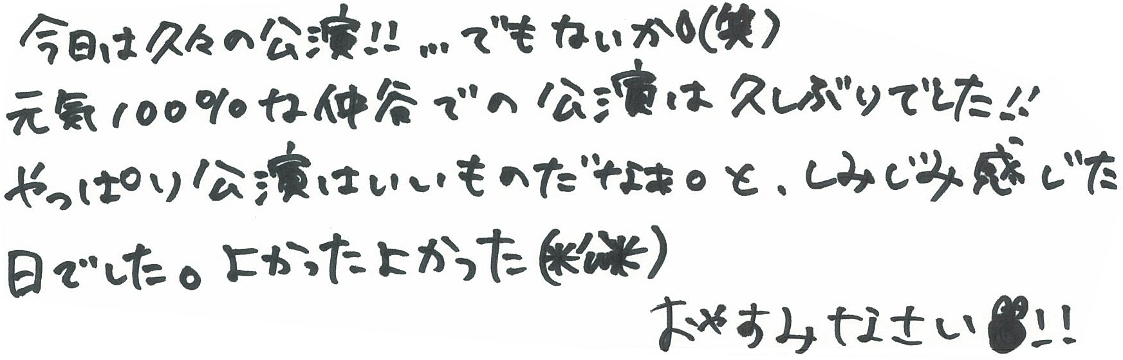 今日は久々の公演!! …でもないか(笑)
元気100%な仲谷での公演は久しぶりでした!!
やっぱり公演はいいものだなぁ。と、しみじみ感じた
日でした。よかったよかった(*´ω`*)
おやすみなさい!!